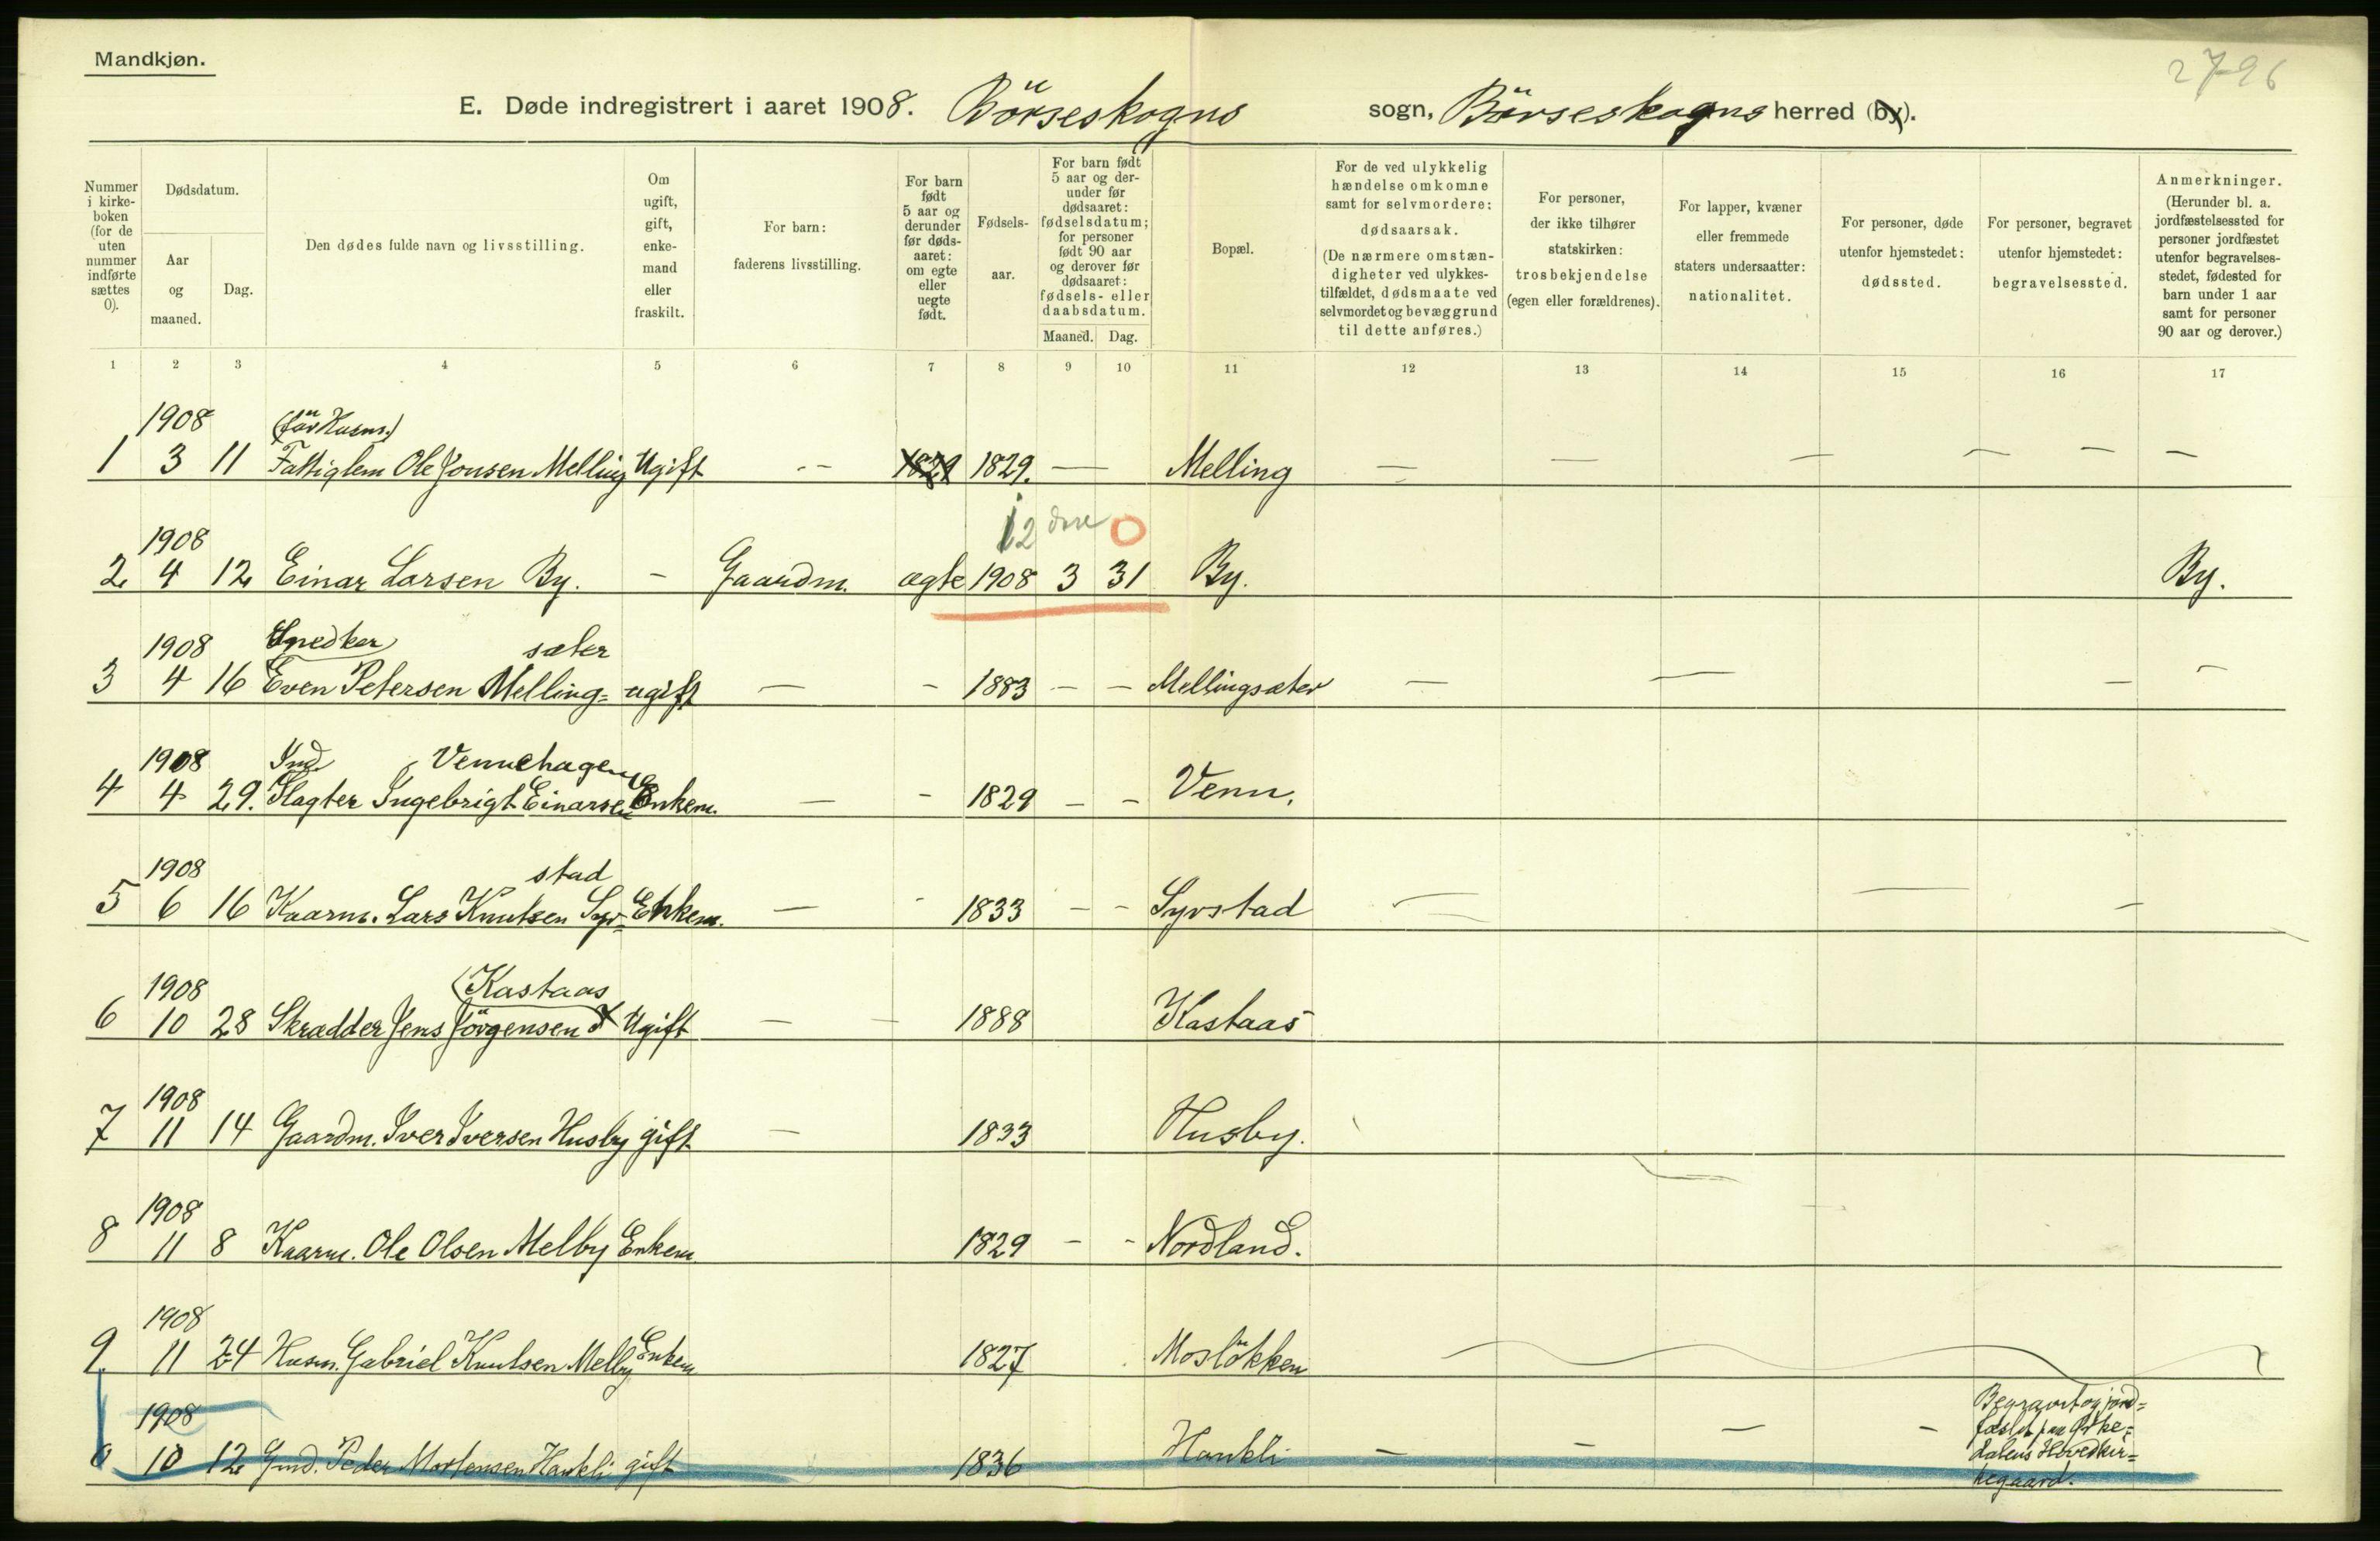 Mandkjøn.
2796
E. Døde indregistrert i aaret 1908. Börseskogns sogn, Börseskogns herred (by).
Nummer i kirke-boken (for de uten nummer indførte sættes 0).
Dødsdatum.
Aar og maaned.
Dag.
Den dødes fulde navn og livsstilling.
Om ugift, gift, enke-mand eller fraskilt.
For barn: faderens livsstilling.
For barn født 5 aar og derunder før døds-aaret: om egte eller uegte født.
Fødsels-aar.
For barn født 5 aar og der-under før dødsaaret: fødselsdatum; for personer født 90 aar og derover før dødsaaret: fødsels- eller daabsdatum.
Maaned. Dag.
Bopæl.
For de ved ulykkelig hændelse omkomne samt for selvmordere: dødsaarsak. (De nærmere omstæn-digheter ved ulykkes-tilfældet, dødsmaate ved selvmordet og bevæggrund til dette anføres.)
For personer, der ikke tilhører statskirken: trosbekjendelse (egen eller forældrenes).
For lapper, kvæner eller fremmede staters undersaatter: nationalitet.
For personer, døde utenfor hjemstedet: dødssted.
For personer, begravet utenfor hjemstedet: begravelsessted.
Anmerkninger. (Herunder bl. a. jordfæstelsessted for personer jordfæstet utenfor begravelses-stedet, fødested for barn under 1 aar samt for personer 90 aar og derover.)
1 2 3 4 5 6 7 8 9 10 11 12 13 14 15 16 17
1908 (för Husm.)
1 3 11 Fattiglem Ole Jonsen Melling Ugift -- 1829 1829. — Melling — — — — — —
12 0
1908
2 4 12 Einar Larsen By. - Gaardm. ægte 1908 3 31 By. By.
1908 Snedker sæter
3 4 16 Even Petersen Melling= ugift — - 1883 - - Mellingsæter — — — -
1908 Ind. Vennehagen
4 4 29. Slagter Ingebrigt Einarsen Enkem. — - 1829 - - Venn.
1908 stad
5 6 16 Kaarm. Lars Knutsen Syr= Enkem. — - 1833 - - Syrstad — — -
1908 (Kastaas
6 10 28 Skrædder Jens Jörgensen Ugift — — 1888 Kastaas
1908
7 11 14 Gaardm. Iver Iversen Husby gift — 1833 Husby.
1908
8 11 8 Kaarm. Ole Olsen Melby Enkem. 1829 - - Nordland.
1908
9 11 24 Husm. Gabriel Knutsen Melby Enkem 1827 Moslökken
1908
0 10 12 Gmd. Peder Mortensen Hankli gift 1836 Hankli — — — — Begravet og jord=
fæstet paa Orke=
dalens Hovedkir=
kegaard.